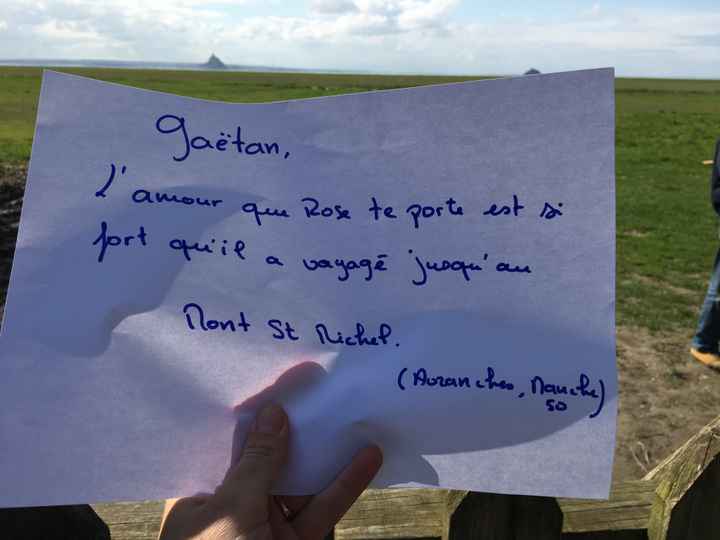 Gaëtan,
L'amour que Rose te porte est si
fort qu'il a voyagé jusqu'au
Mont St Michel.
(Avranches, Manche)
50